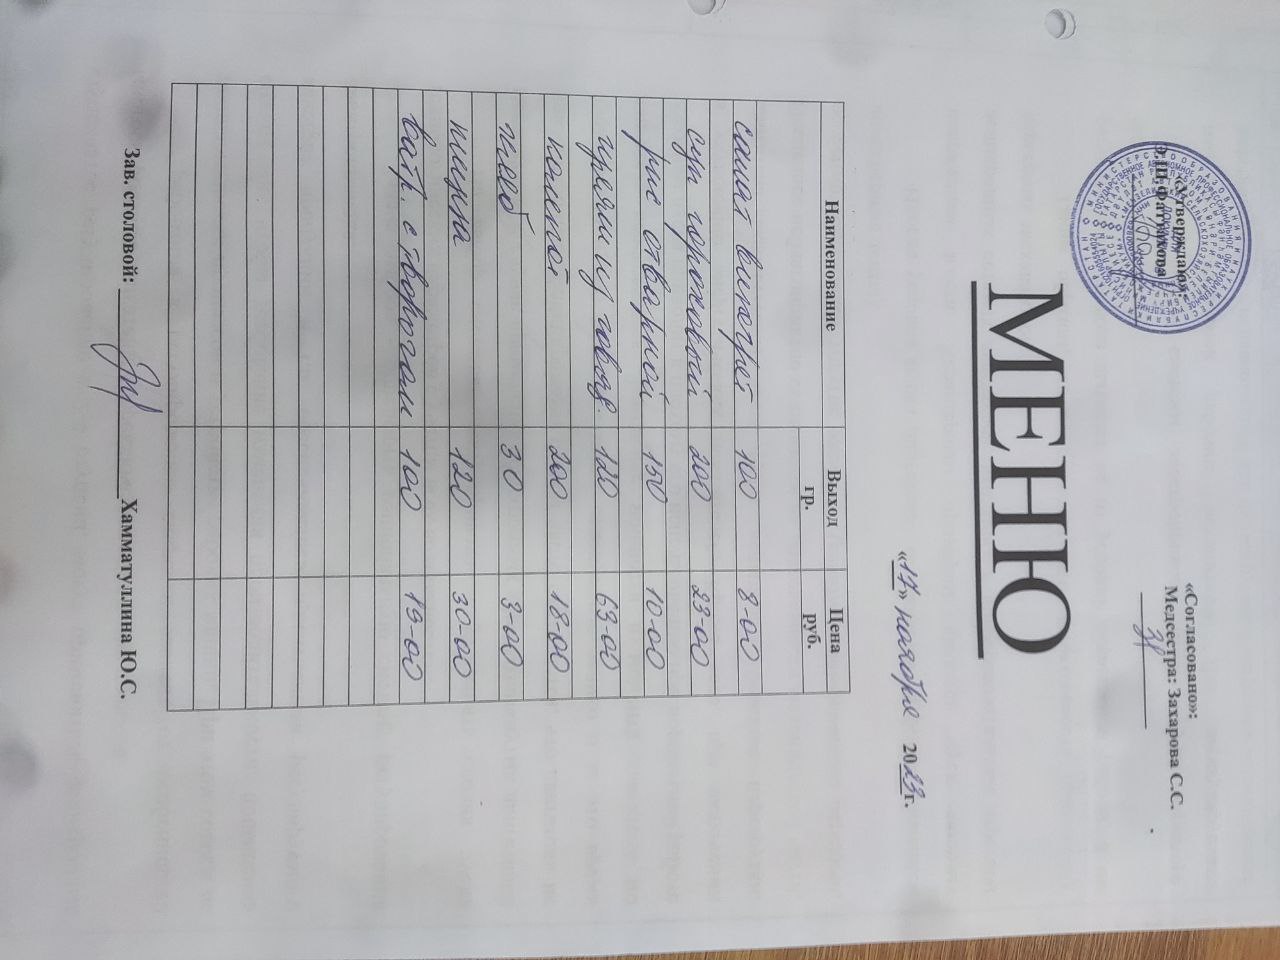 «Утверждаю»
Э.Ш.Фаттахова
«Согласовано»:
Медсестра: Захарова С.С.
МЕНЮ
«17» ноября 2023г.
Наименование Выход гр. Цена руб.
салат винегрет 100 8-00
суп гороховый 200 23-00
рис отварной 150 10-00
гуляш из говяд. 120 63-00
компот 200 18-00
хлеб 30 3-00
пицца 120 30-00
ватр. с творогом 100 19-00
Зав. столовой: Хамматуллина Ю.С.